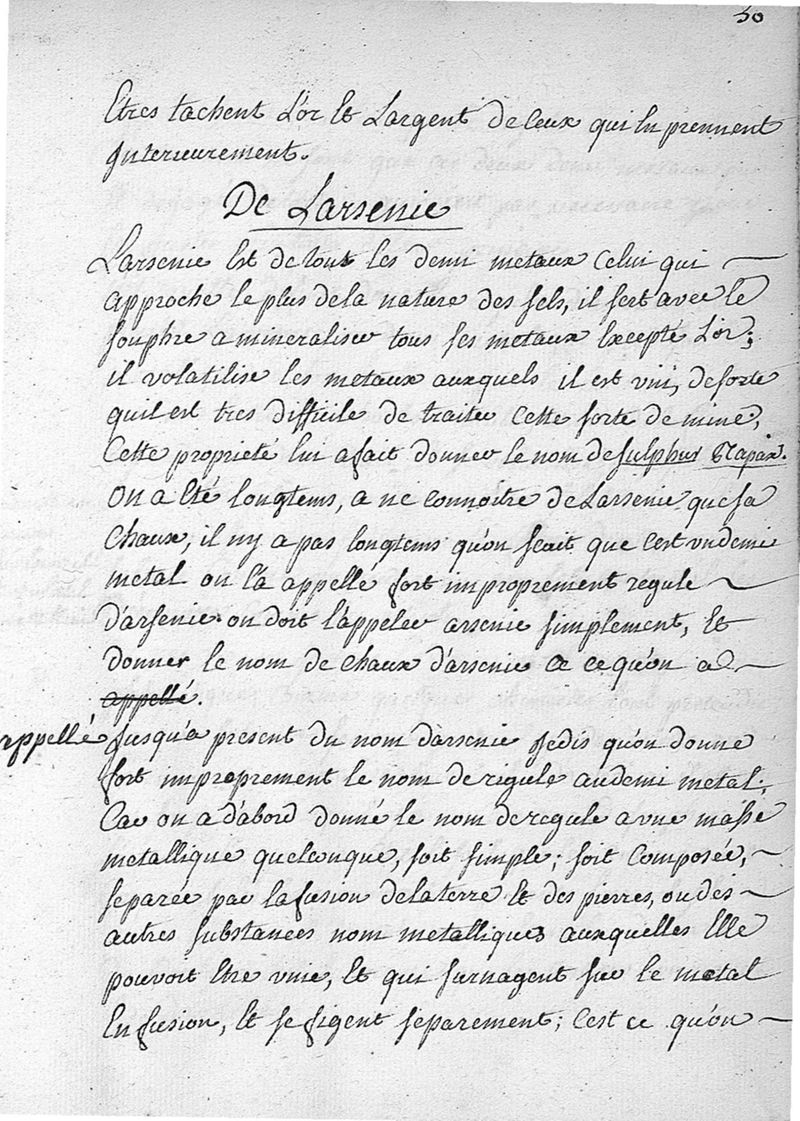 50
Etres tachent L'or Et Largent de Ceux qui En prennent
Interieurement.
De Larsenic
Larsenic Est de tous les demi metaux Celui qui
approche le plus de la nature des sels, il sert avec le
souphre a mineraliser tous les metaux Excepté L'or;
il volatilise les metaux auxquels il est vni, de sorte
quil est tres difficile de traiter Cette sorte de mine,
Cette proprieté lui a fait donner le nom de sulphur Rapax.
On a Eté longtems, a ne Connoitre de Larsenic que sa
Chaux, il ny a pas longtems qu'on scait que C'est vn demi
metal on l'a appellé fort improprement regule
d'arsenic. on doit l'appeler arsenic simplement, Et
donner le nom de Chaux d'arsenic a ce qu'on a
appellé.
appellé Jusqu'a present du nom d'arsenic Je dis qu'on donne
fort improprement le nom de regule au demi metal;
Car on a d'abord donné le nom de regule a vne masse
metallique quelconque, soit simple; soit Composée,
separée par la fusion de la terre Et des pierres, ou des
autres substances nom metalliques auxquelles Elle
pouvoit Etre vnie, Et qui surnagent sur le metal
En fusion, Et se figent separement; C'est ce qu'on